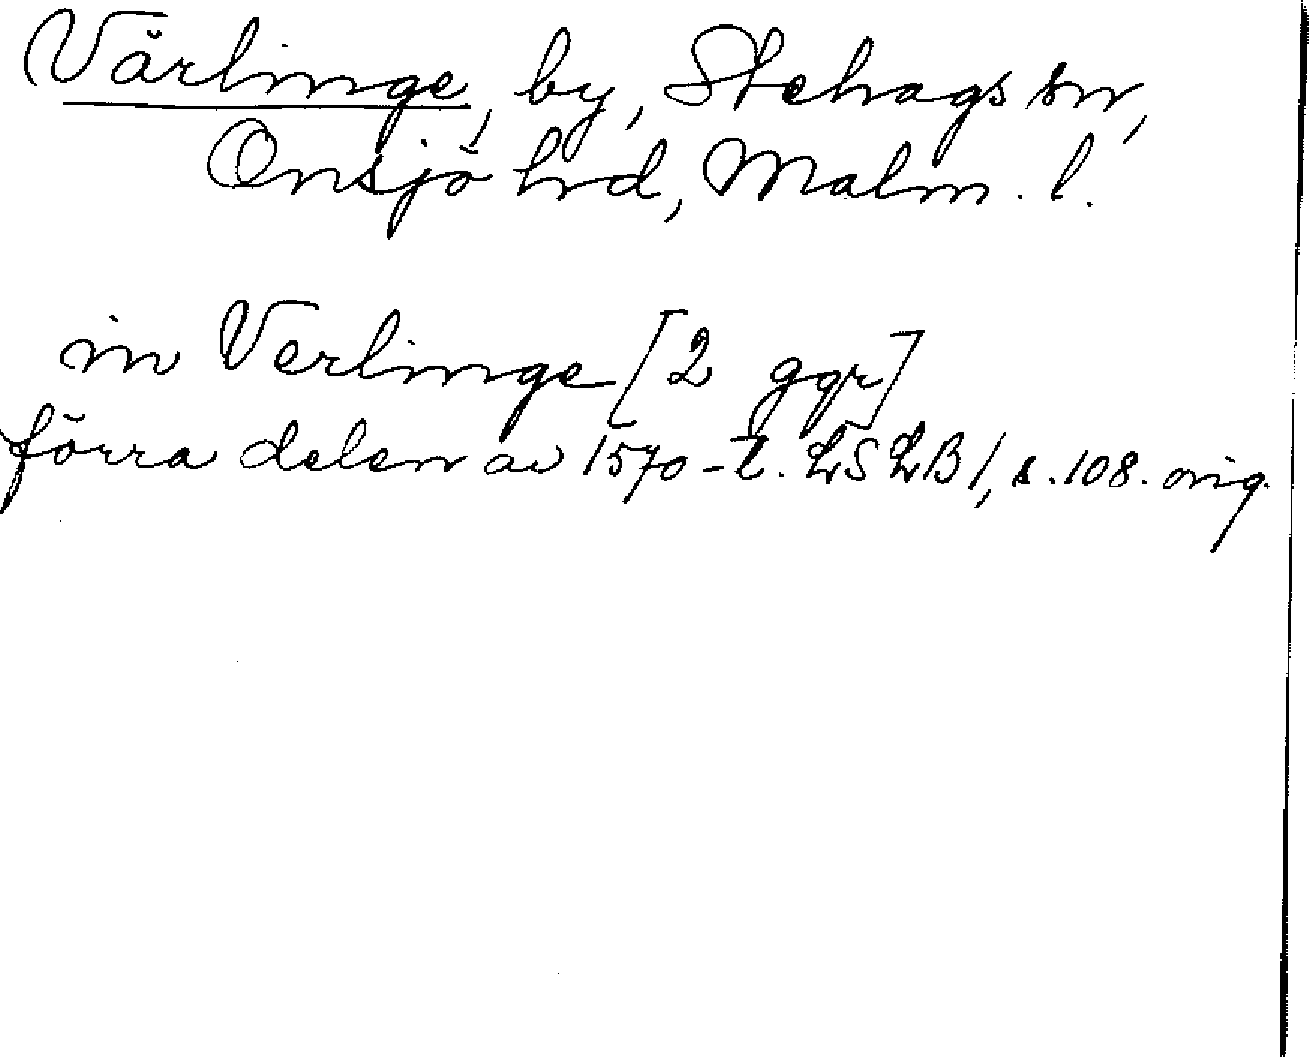 Värlinge, by, Stehags sn,
Onsjö hrd, Malm. l.
in Verlinge [2 ggr]
förra delen av 1570-t. LSLB 1, s. 108. orig.